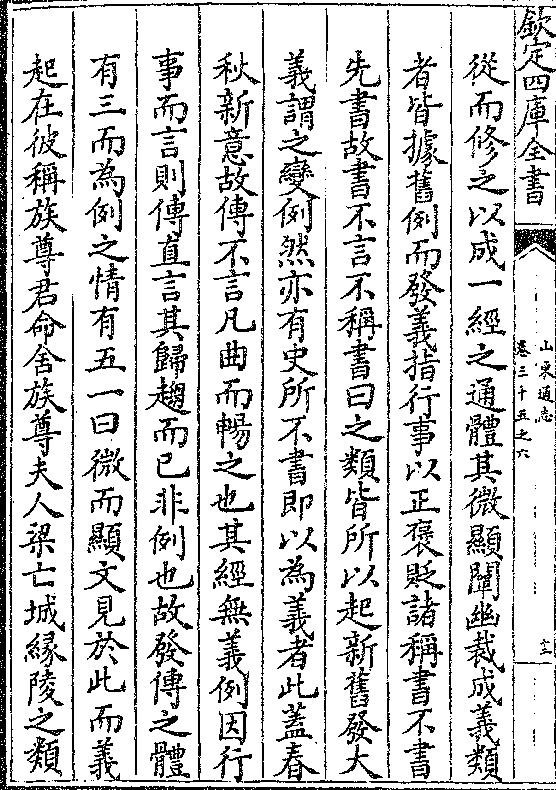 欽定四庫全書
山東通志
卷三十五之六
從而修之以成一經之通體其微顯闡幽裁成義類
者皆據舊例而發義指行事以正褒貶諸稱書不書
先書故書不言不稱書曰之類皆所以起新舊發大
義謂之變例然亦有史所不書即以為義者此蓋春
秋新意故傳不言凡曲而暢之也其經無義例因行
事而言則傳直言其歸趣而已非例也故發傳之體
有三而為例之情有五一曰微而顯文見於此而義
起在彼稱族尊君命舍族尊夫人梁亡城縁陵之類